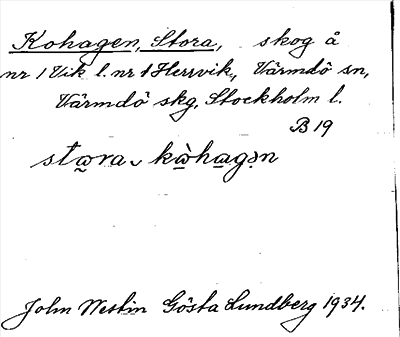 Kohagen, Stora, skog å
nr 1 Vik l. nr 1 Herrvik, Värmdö sn,
Värmdö skg, Stockholm l.
B 19
stω̰ra kὼhagən
John Westin Gösta Lundberg 1934.